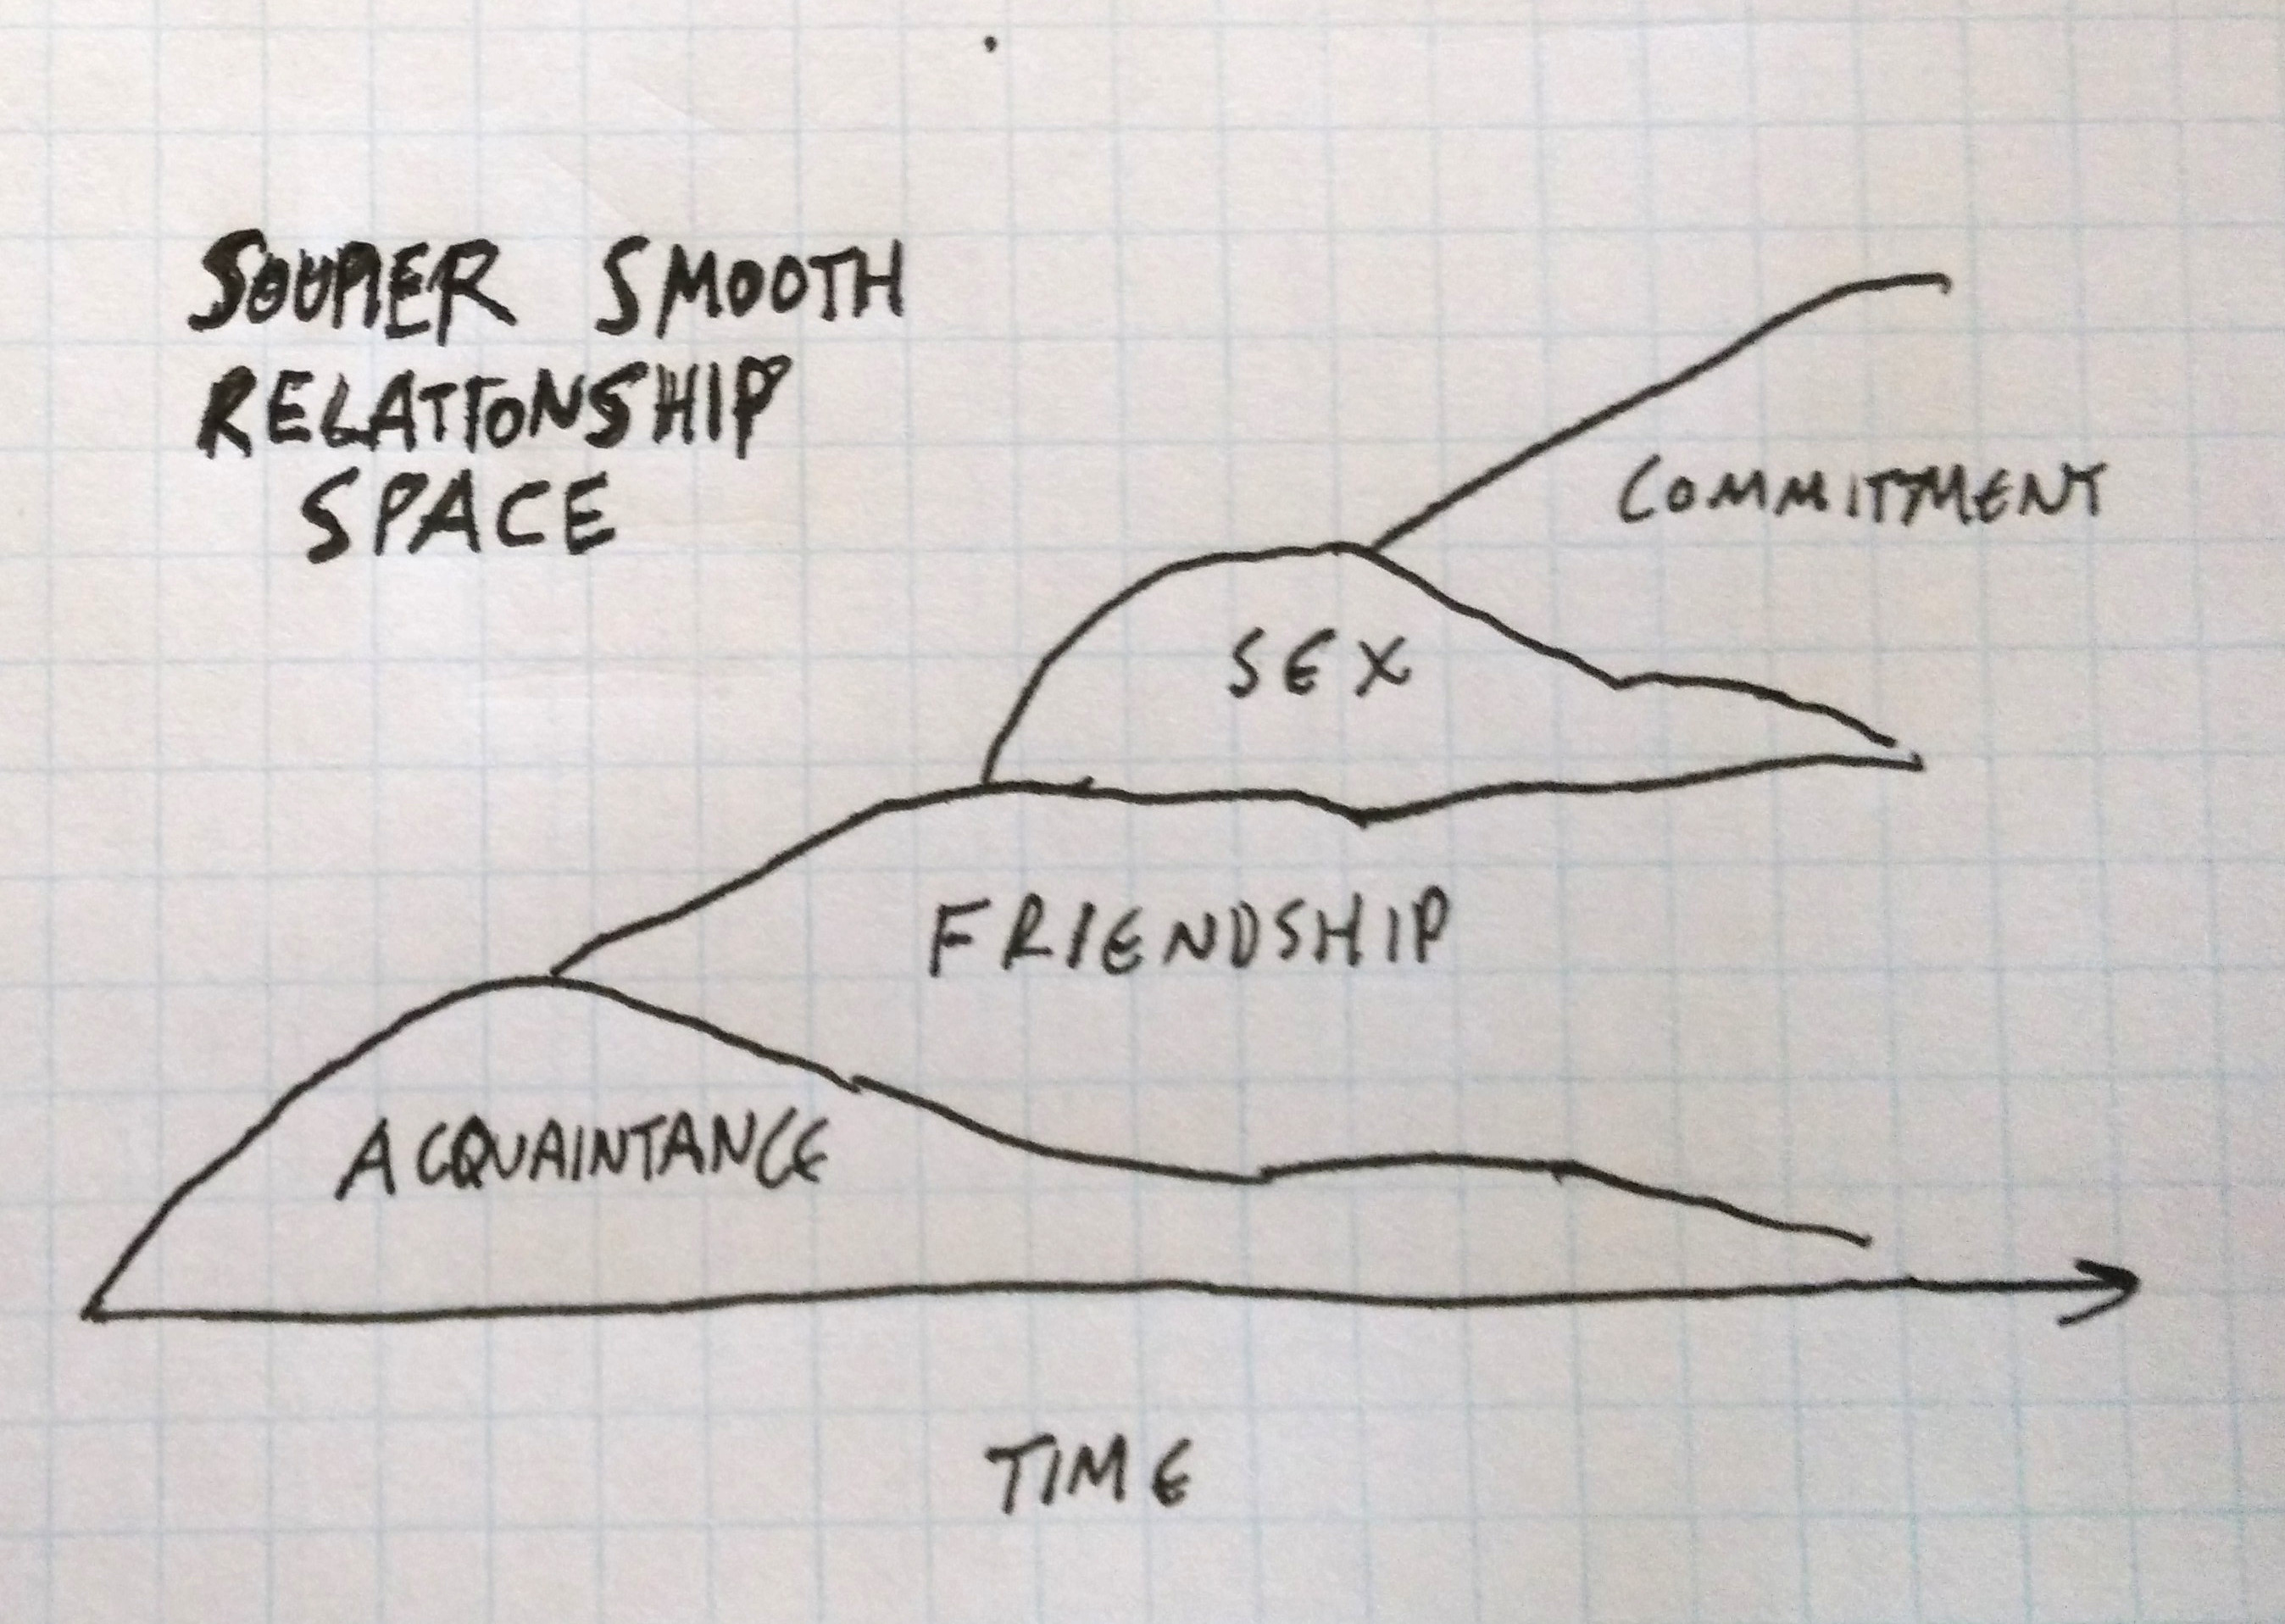 SOUPER SMOOTH
RELATIONSHIP
SPACE
COMMITMENT
SEX
FRIENDSHIP
ACQUAINTANCE
TIME